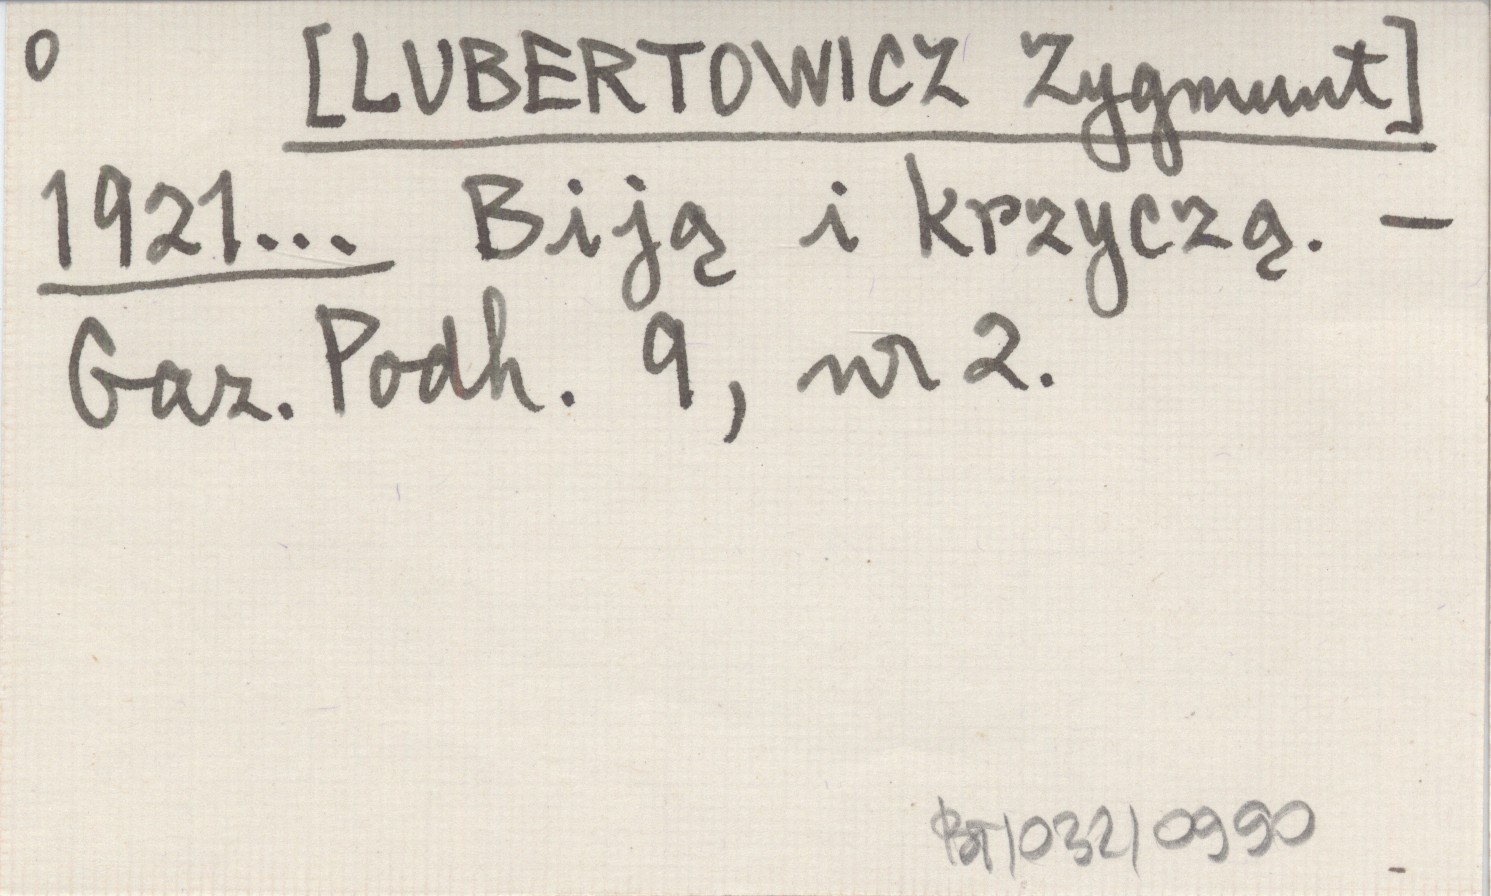 0 [LUBERTOWICZ Zygmunt]
1921... Biją i krzyczą. –
Gaz. Podh. 9, nr 2.
BT/032/0990